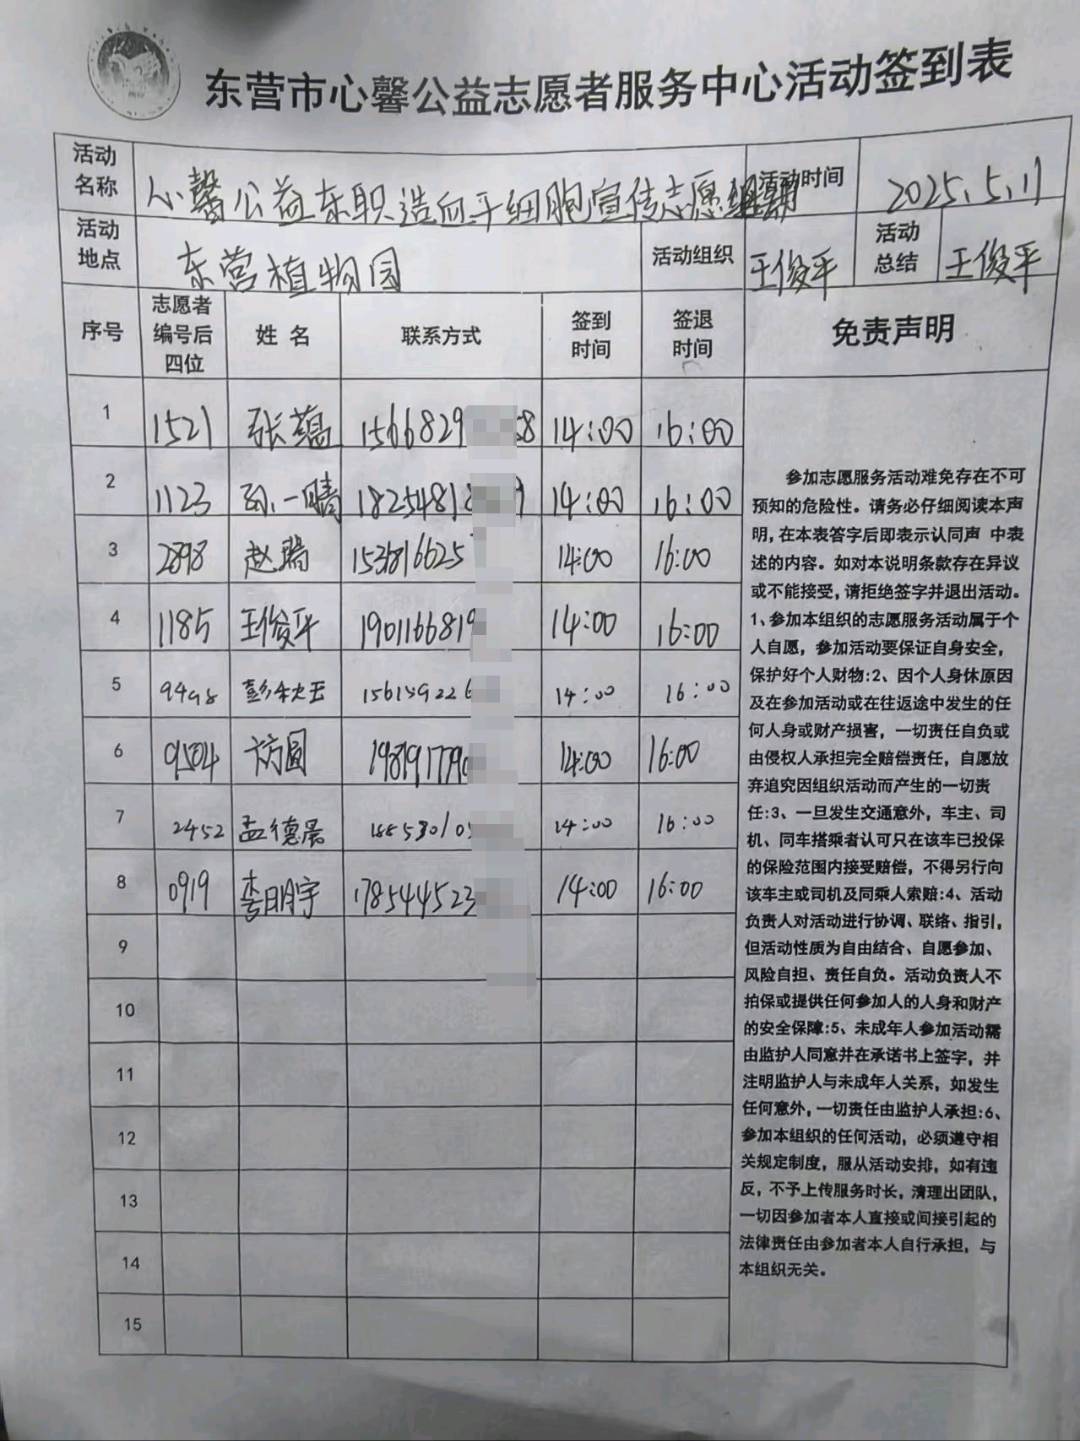 东营市心馨公益志愿者服务中心活动签到表
活动名称 心馨公益东职造血干细胞宣传志愿 活动时间 2025.5.11
活动地点 东营植物园 活动组织 王俊平 活动总结 王俊平
序号 志愿者编号后四位 姓名 联系方式 签到时间 签退时间 免责声明
1 1521 张蕴 1566829 8 14:00 16:00
2 1123 孙一晴 1825481 14:00 16:00
3 2898 赵瑞 153816625 14:00 16:00
4 1185 王俊平 1901166819 14:00 16:00
5 9498 156159226 14:00 16:00
6 9504 方圆 198191779 14:00 16:00
7 2452 孟德晨 18853010 14:00 16:00
8 0919 李明宇 178544523 14:00 16:00
9
10
11
12
13
14
15
参加志愿服务活动难免存在不可
预知的危险性。请务必仔细阅读本声
明,在本表答字后即表示认同声 中表
述的内容。如对本说明条款存在异议
或不能接受,请拒绝签字并退出活动。
1、参加本组织的志愿服务活动属于个
人自愿,参加活动要保证自身安全,
保护好个人财物:2、因个人身休原因
及在参加活动或在往返途中发生的任
何人身或财产损害,一切责任自负或
由侵权人承担完全赔偿责任,自愿放
弃追究因组织活动而产生的一切责
任:3、一旦发生交通意外,车主、司
机、同车搭乘者认可只在该车已投保
的保险范围内接受赔偿,不得另行向
该车主或司机及同乘人索赔:4、活动
负责人对活动进行协调、联络、指引,
但活动性质为自由结合、自愿参加、
风险自担、责任自负。活动负责人不
拍保或提供任何参加人的人身和财产
的安全保障:5、未成年人参加活动需
由监护人同意并在承诺书上签字,并
注明监护人与未成年人关系,如发生
任何意外,一切责任由监护人承担:6、
参加本组织的任何活动,必须遵守相
关规定制度,服从活动安排,如有违
反,不予上传服务时长,清理出团队,
一切因参加者本人直接或间接引起的
法律责任由参加者本人自行承担,与
本组织无关。